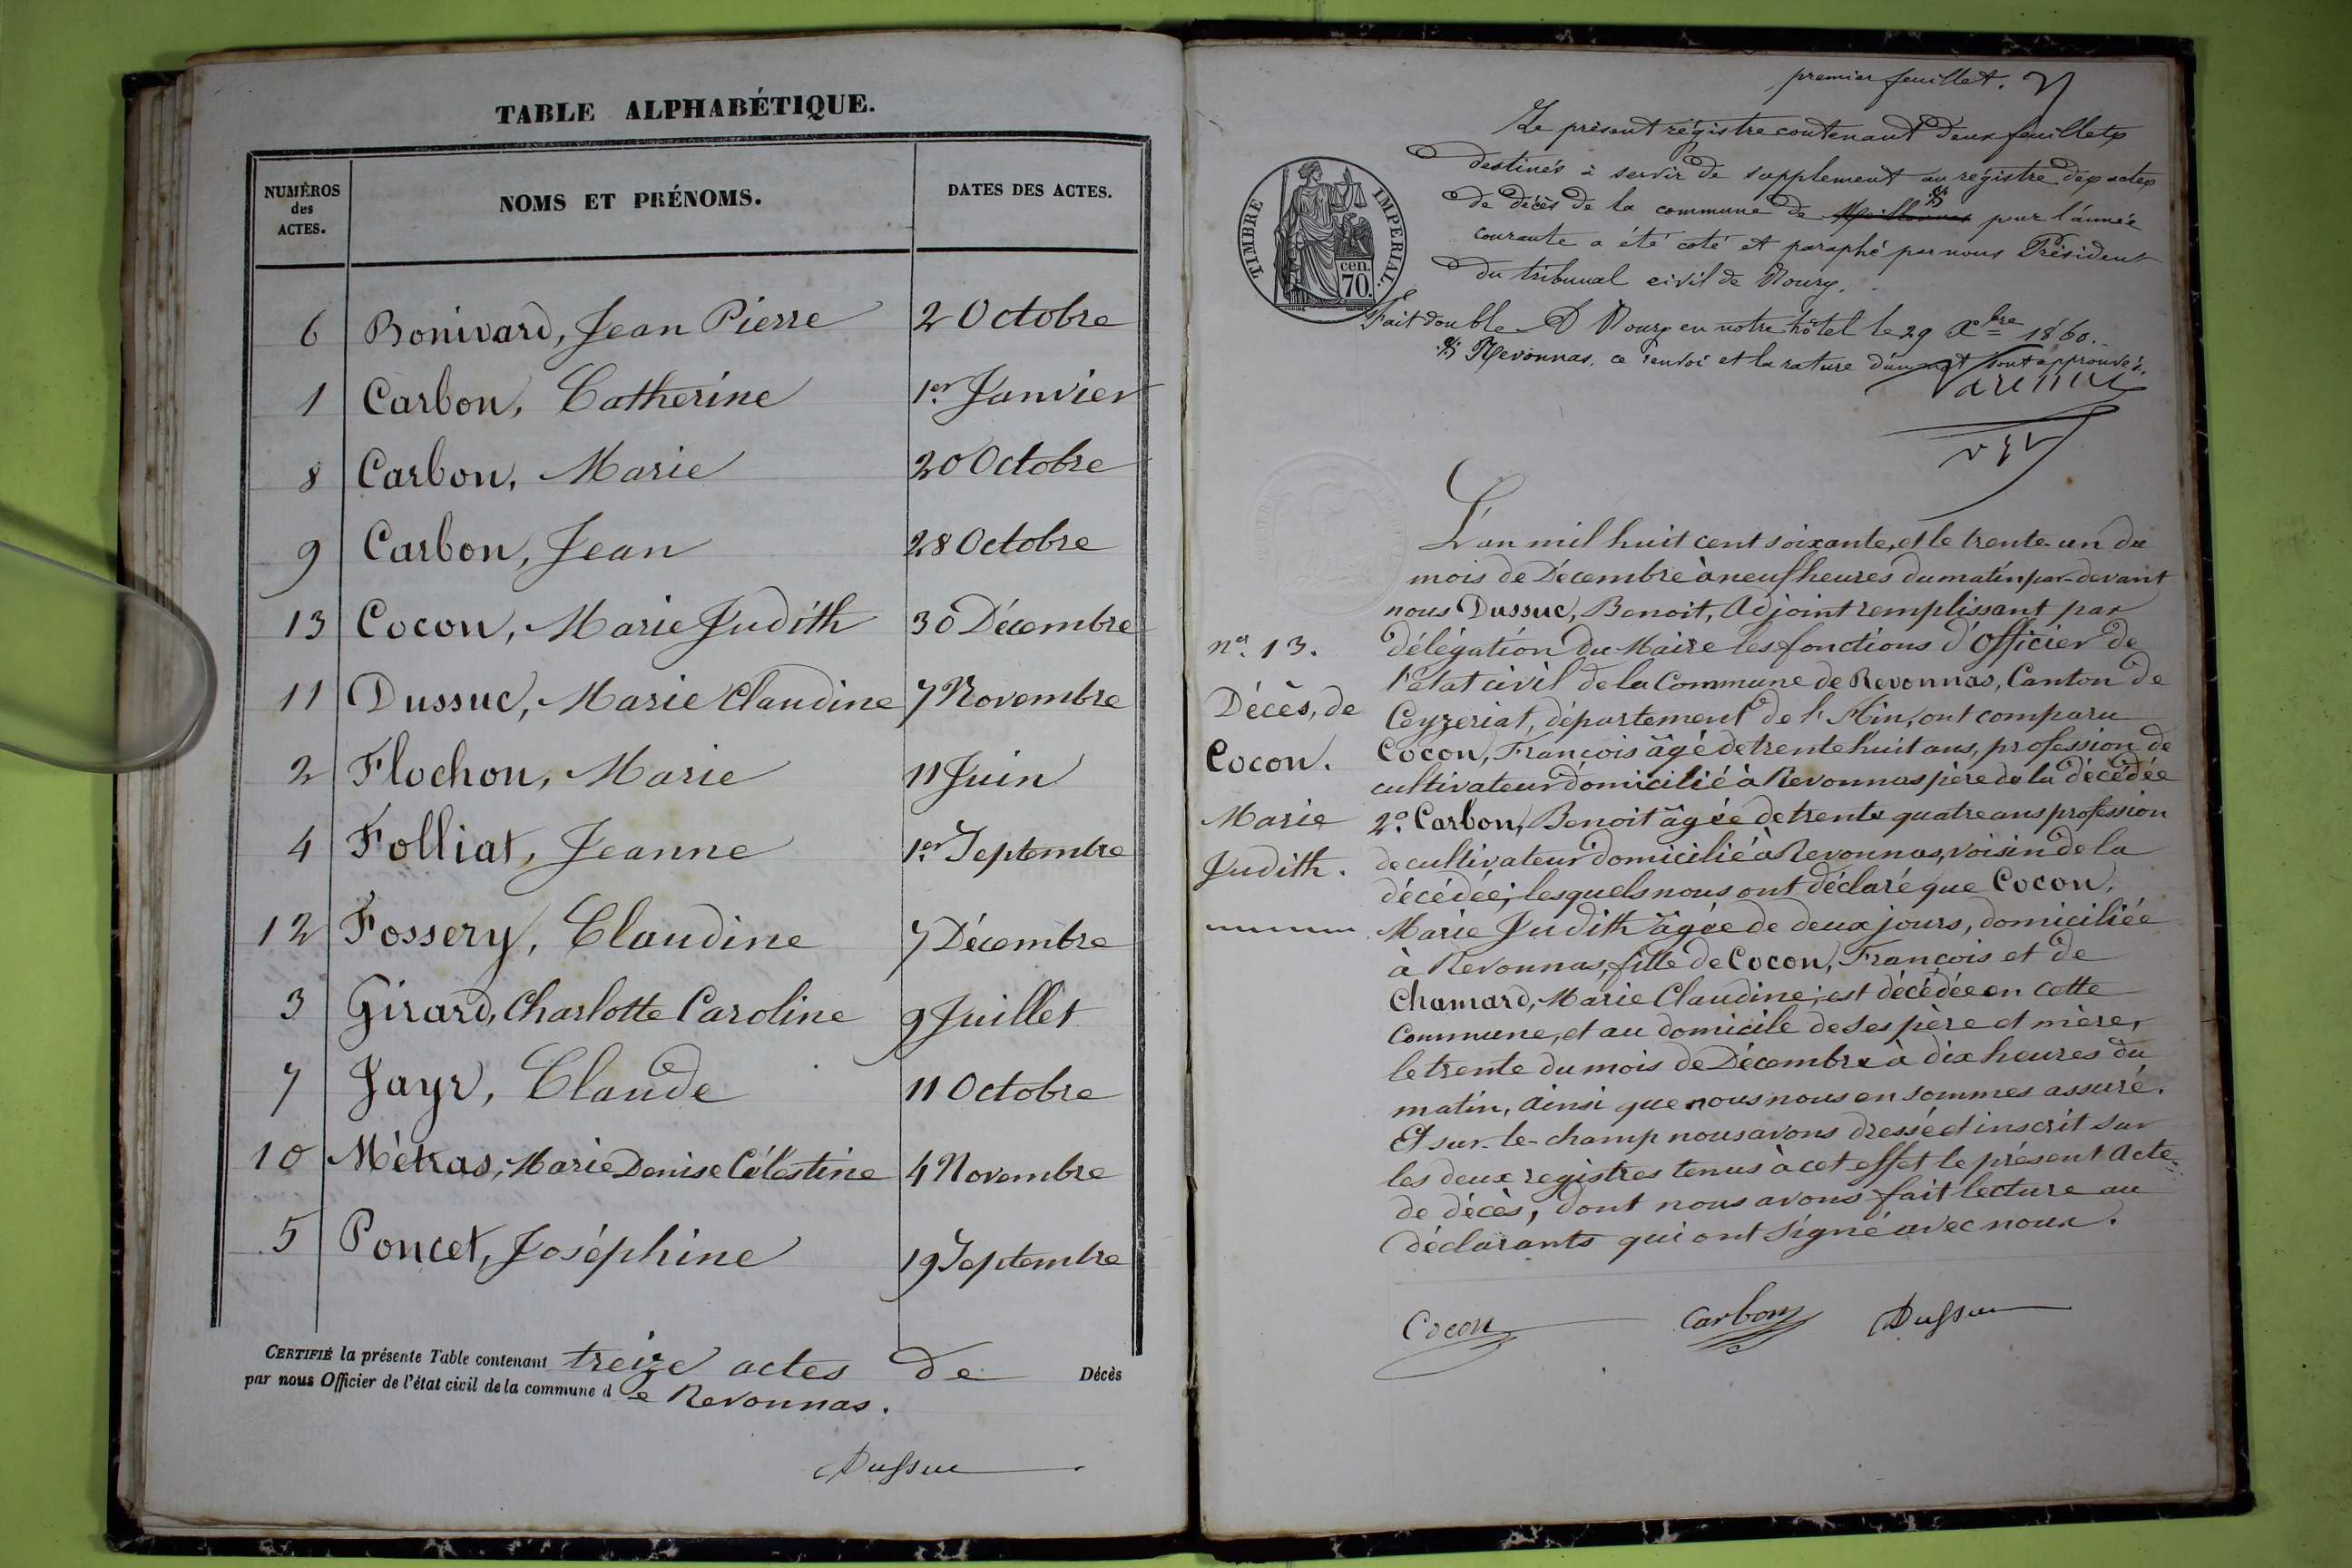 TABLE ALPHABÉTIQUE.
NUMÉROS des ACTES.
NOMS ET PRÉNOMS.
DATES DES ACTES.
6 Bonivard, Jean Pierre 2 Octobre
1 Carbon, Catherine 1er Janvier
8 Carbon, Marie 20 Octobre
9 Carbon, Jean 28 Octobre
13 Cocon, Marie Judith 30 Décembre
11 Dussuc, Marie Claudine 7 Novembre
2 Flochon, Marie 11 Juin
4 Folliat, Jeanne 1er Septembre
12 Fossery, Claudine 7 Décembre
3 Girard, Charlotte Caroline 9 Juillet
7 Jayr, Claude 11 Octobre
10 Mètras, Marie Denise Célestine 4 Novembre
5 Poncet, Joséphine 19 Septembre
CERTIFIÉ la présente Table contenant treize actes de Décès
par nous Officier de l'état civil de la commune de Revonnas.
Dussuc
premier feuillet.
Le présent régistre contenant deux feuillets
destinés à servir de supplement au régistre des actes
de décès de la commune de pour l'année
courante a été coté et paraphé par nous Président
du tribunal civil de Bourg.
Fait double A Bourg en notre hôtel le 29 Xbre 1860.
Revonnas. ce renvoi et la rature d'un mot sont approuvés.
TIMBRE IMPERIAL.
70. cen.
L'an mil huit cent soixante, et le trente-un du
mois de Décembre à neuf heures du matin par-devant
nous Dussuc, Benoit, Adjoint remplissant par
délégation du Maire les fonctions d'Officier de
l'état civil de la Commune de Revonnas, Canton de
Ceyzeriat, département de l'Ain, ont comparu
Cocon, François âgé de trente huit ans, profession de
cultivateur domicilié à Revonnas père de la décédée
2o. Carbon, Benoit âgée de trente quatre ans profession
de cultivateur domicilié à Revonnas, voisin de la
décédée; lesquels nous ont déclaré que Cocon,
Marie Judith âgée de deux jours, domiciliée
à Revonnas, fille de Cocon, François et de
Chanard, Marie Claudine; est décédée en cette
Commune, et au domicile de ses père et mère,
le trente du mois de Décembre à dix heures du
matin, ainsi que nous nous en sommes assuré.
Et sur-le-champ nous avons dressé et inscrit sur
les deux registres tenus à cet effet le présent Acte
de décès, dont nous avons fait lecture au
déclarants qui ont signé avec nous.
no. 13.
Décès, de
Cocon.
Marie
Judith.
Cocon Carbon Dussuc